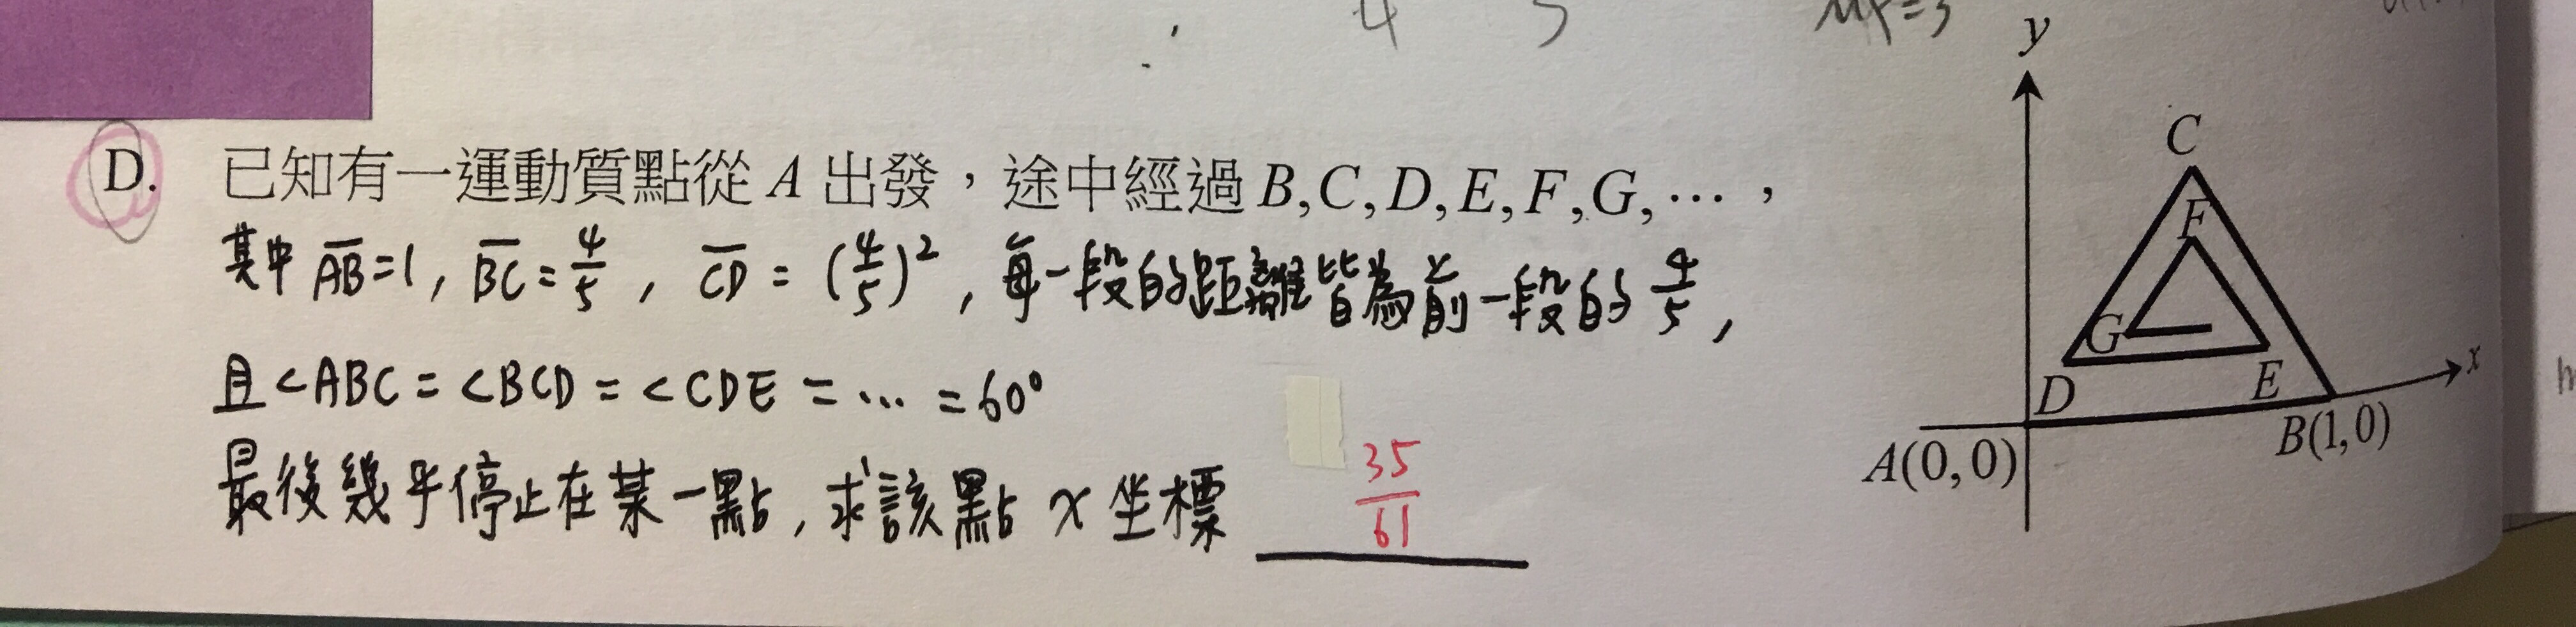 4 5
D. 已知有一運動質點從 A 出發，途中經過 B,C,D,E,F,G,⋯，
其中 A̅B̅=1, B̅C̅=4/5, C̅D̅=(4/5)², 每一段的距離皆為前一段的4/5,
且∠ABC=∠BCD=∠CDE=⋯=60°
最後幾乎停止在某一點,求該點 x 坐標 35/61
y
C
F
G
D
E
x
B(1,0)
A(0,0)